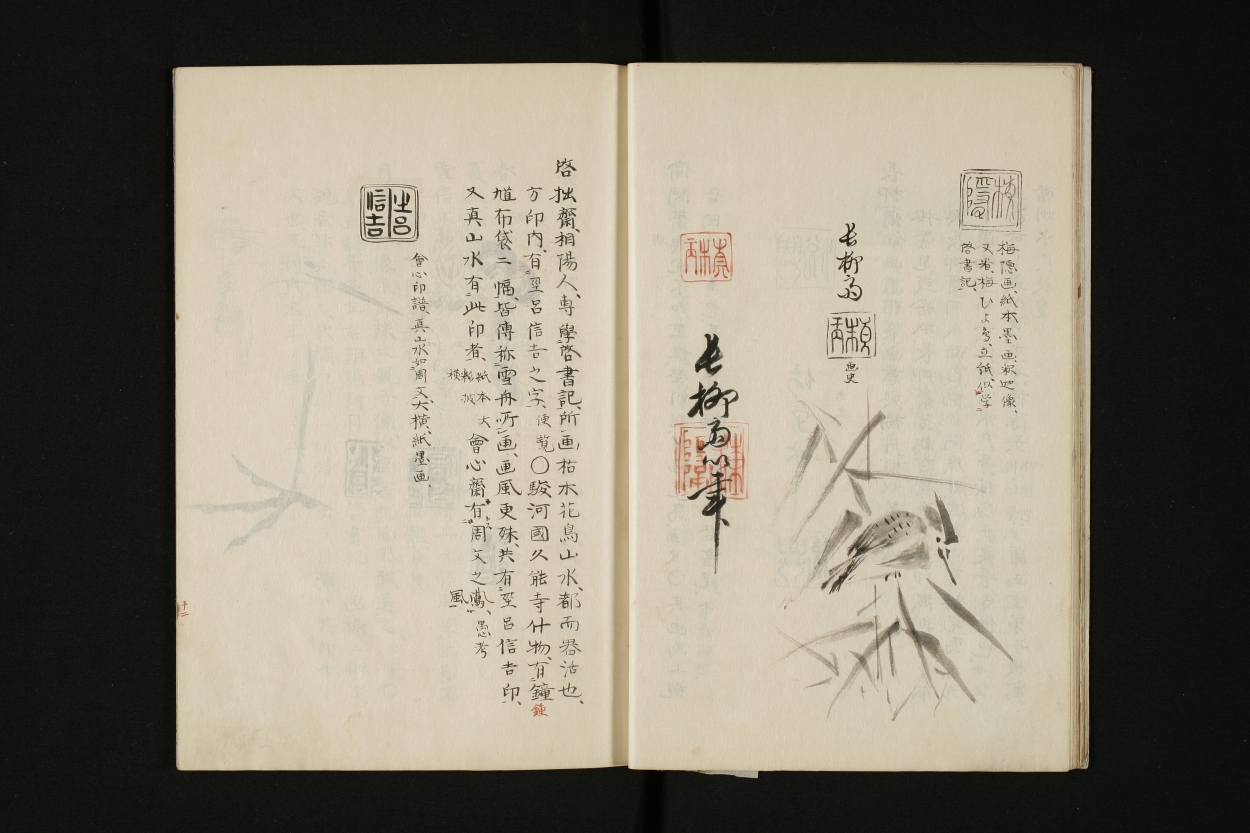 梅隠
梅隠画、紙本墨画釈迦像、
又着梅ひよ鳥、立紙似学
啓書記、
長柳斎
画史
長柳斎筆
啓拙齋、相陽人、専學啓書記、所画枯木花鳥山水、都而器沽也、
方印内、有呂信吉之字、便覧〇駿河國久能寺什物、有鐘
鍾
馗布袋二幅、皆傳称雪舟所画、画風更殊、共有呂信吉印、
又真山水有此印者、紙本大横
會心齋有周文之風、愚考
呂信吉
會心印譜、真山水如周文、大横、紙墨画、
十二